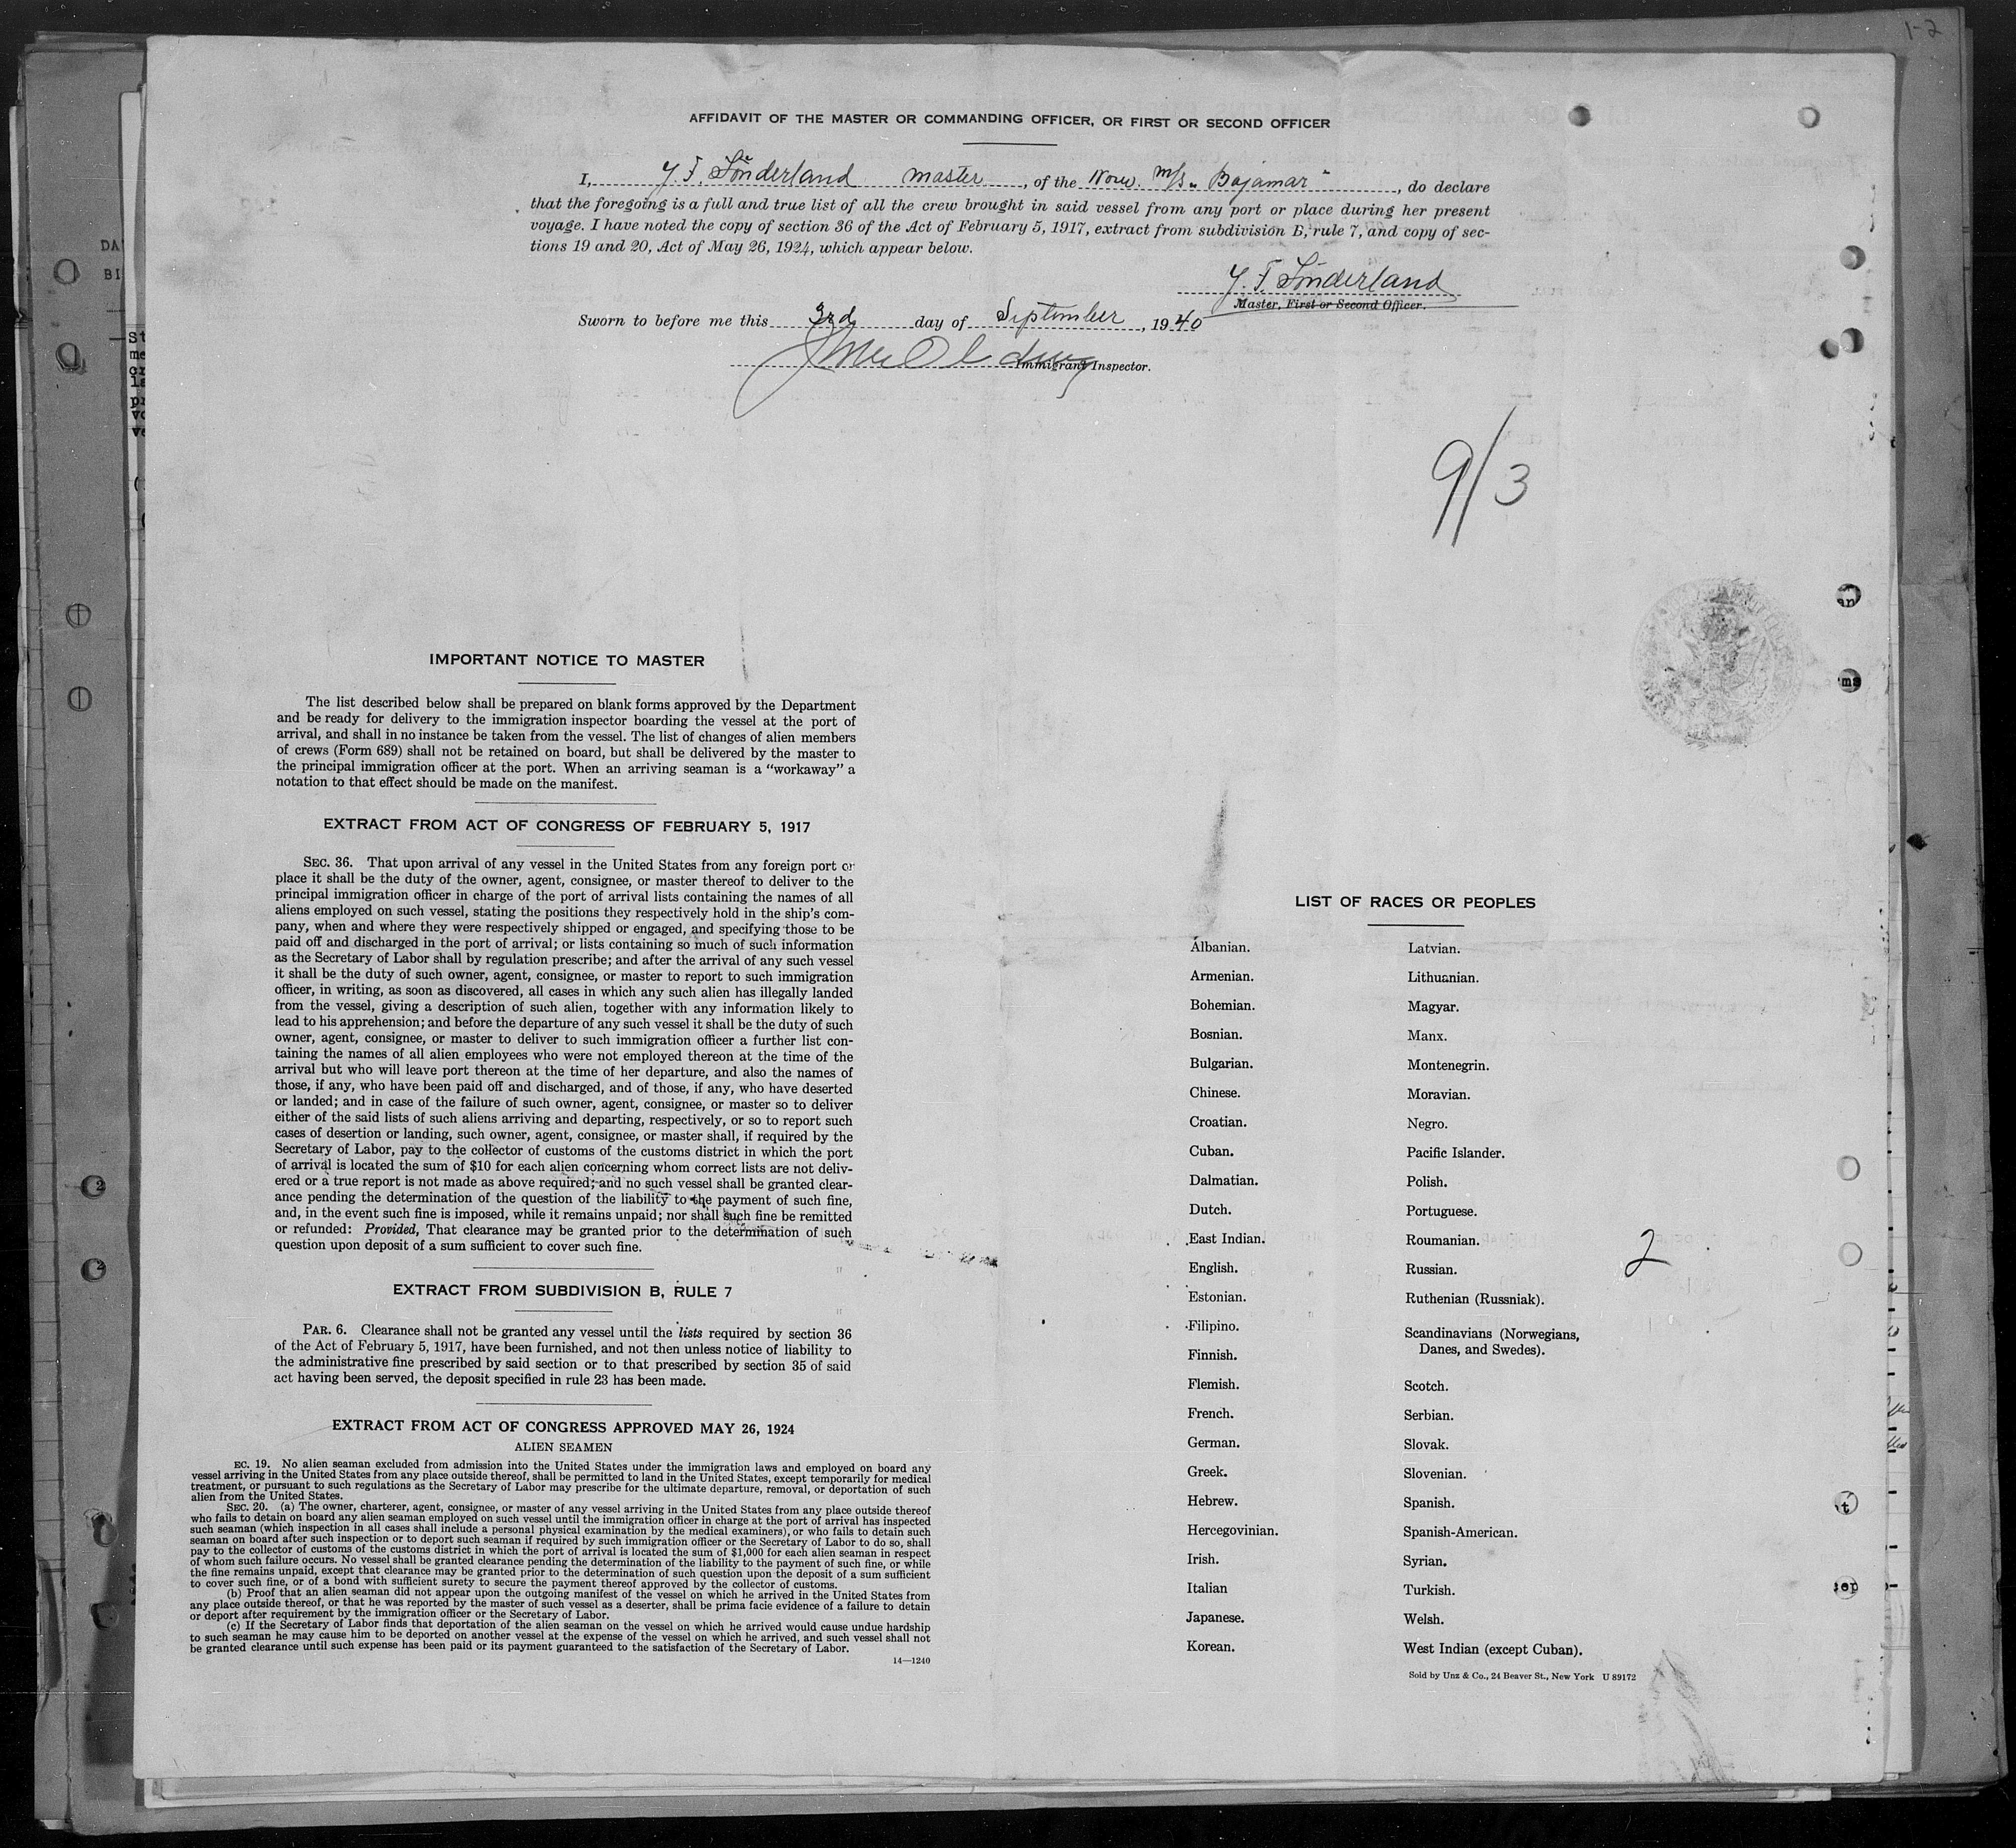 1-2
AFFIDAVIT OF THE MASTER OR COMMANDING OFFICER, OR FIRST OR SECOND OFFICER
I, Y. F. Sönderland master, of the Norw. m/s „Bajamar", do declare
that the foregoing is a full and true list of all the crew brought in said vessel from any port or place during her present
voyage. I have noted the copy of section 36 of the Act of February 5, 1917, extract from subdivision B, rule 7, and copy of sec-
tions 19 and 20, Act of May 26, 1924, which appear below.
Y. F. Sönderland
Master, First or Second Officer.
Sworn to before me this 3rd day of September, 1940
Immigrant Inspector.
9/3
IMPORTANT NOTICE TO MASTER
The list described below shall be prepared on blank forms approved by the Department
and be ready for delivery to the immigration inspector boarding the vessel at the port of
arrival, and shall in no instance be taken from the vessel. The list of changes of alien members
of crews (Form 689) shall not be retained on board, but shall be delivered by the master to
the principal immigration officer at the port. When an arriving seaman is a "workaway" a
notation to that effect should be made on the manifest.
EXTRACT FROM ACT OF CONGRESS OF FEBRUARY 5, 1917
SEC. 36. That upon arrival of any vessel in the United States from any foreign port or
place it shall be the duty of the owner, agent, consignee, or master thereof to deliver to the
principal immigration officer in charge of the port of arrival lists containing the names of all
aliens employed on such vessel, stating the positions they respectively hold in the ship's com-
pany, when and where they were respectively shipped or engaged, and specifying those to be
paid off and discharged in the port of arrival; or lists containing so much of such information
as the Secretary of Labor shall by regulation prescribe; and after the arrival of any such vessel
it shall be the duty of such owner, agent, consignee, or master to report to such immigration
officer, in writing, as soon as discovered, all cases in which any such alien has illegally landed
from the vessel, giving a description of such alien, together with any information likely to
lead to his apprehension; and before the departure of any such vessel it shall be the duty of such
owner, agent, consignee, or master to deliver to such immigration officer a further list con-
taining the names of all alien employees who were not employed thereon at the time of the
arrival but who will leave port thereon at the time of her departure, and also the names of
those, if any, who have been paid off and discharged, and of those, if any, who have deserted
or landed; and in case of the failure of such owner, agent, consignee, or master so to deliver
either of the said lists of such aliens arriving and departing, respectively, or so to report such
cases of desertion or landing, such owner, agent, consignee, or master shall, if required by the
Secretary of Labor, pay to the collector of customs of the customs district in which the port
of arrival is located the sum of $10 for each alien concerning whom correct lists are not deliv-
ered or a true report is not made as above required; and no such vessel shall be granted clear-
ance pending the determination of the question of the liability to the payment of such fine,
and, in the event such fine is imposed, while it remains unpaid; nor shall such fine be remitted
or refunded: Provided, That clearance may be granted prior to the determination of such
question upon deposit of a sum sufficient to cover such fine.
EXTRACT FROM SUBDIVISION B, RULE 7
PAR. 6. Clearance shall not be granted any vessel until the lists required by section 36
of the Act of February 5, 1917, have been furnished, and not then unless notice of liability to
the administrative fine prescribed by said section or to that prescribed by section 35 of said
act having been served, the deposit specified in rule 23 has been made.
EXTRACT FROM ACT OF CONGRESS APPROVED MAY 26, 1924
ALIEN SEAMEN
EC. 19. No alien seaman excluded from admission into the United States under the immigration laws and employed on board any
vessel arriving in the United States from any place outside thereof, shall be permitted to land in the United States, except temporarily for medical
treatment, or pursuant to such regulations as the Secretary of Labor may prescribe for the ultimate departure, removal, or deportation of such
alien from the United States.
SEC. 20. (a) The owner, charterer, agent, consignee, or master of any vessel arriving in the United States from any place outside thereof
who fails to detain on board any alien seaman employed on such vessel until the immigration officer in charge at the port of arrival has inspected
such seaman (which inspection in all cases shall include a personal physical examination by the medical examiners), or who fails to detain such
seaman on board after such inspection or to deport such seaman if required by such immigration officer or the Secretary of Labor to do so, shall
pay to the collector of customs of the customs district in which the port of arrival is located the sum of $1,000 for each alien seaman in respect
of whom such failure occurs. No vessel shall be granted clearance pending the determination of the liability to the payment of such fine, or while
the fine remains unpaid, except that clearance may be granted prior to the determination of such question upon the deposit of a sum sufficient
to cover such fine, or of a bond with sufficient surety to secure the payment thereof approved by the collector of customs.
(b) Proof that an alien seaman did not appear upon the outgoing manifest of the vessel on which he arrived in the United States from
any place outside thereof, or that he was reported by the master of such vessel as a deserter, shall be prima facie evidence of a failure to detain
or deport after requirement by the immigration officer or the Secretary of Labor.
(c) If the Secretary of Labor finds that deportation of the alien seaman on the vessel on which he arrived would cause undue hardship
to such seaman he may cause him to be deported on another vessel at the expense of the vessel on which he arrived, and such vessel shall not
be granted clearance until such expense has been paid or its payment guaranteed to the satisfaction of the Secretary of Labor.
14—1240
LIST OF RACES OR PEOPLES
Albanian.
Armenian.
Bohemian.
Bosnian.
Bulgarian.
Chinese.
Croatian.
Cuban.
Dalmatian.
Dutch.
East Indian.
English.
Estonian.
Filipino.
Finnish.
Flemish.
French.
German.
Greek.
Hebrew.
Hercegovinian.
Irish.
Italian
Japanese.
Korean.
Latvian.
Lithuanian.
Magyar.
Manx.
Montenegrin.
Moravian.
Negro.
Pacific Islander.
Polish.
Portuguese.
Roumanian.
Russian.
Ruthenian (Russniak).
Scandinavians (Norwegians,
Danes, and Swedes).
Scotch.
Serbian.
Slovak.
Slovenian.
Spanish.
Spanish-American.
Syrian.
Turkish.
Welsh.
West Indian (except Cuban).
2
Sold by Unz & Co., 24 Beaver St., New York U 89172